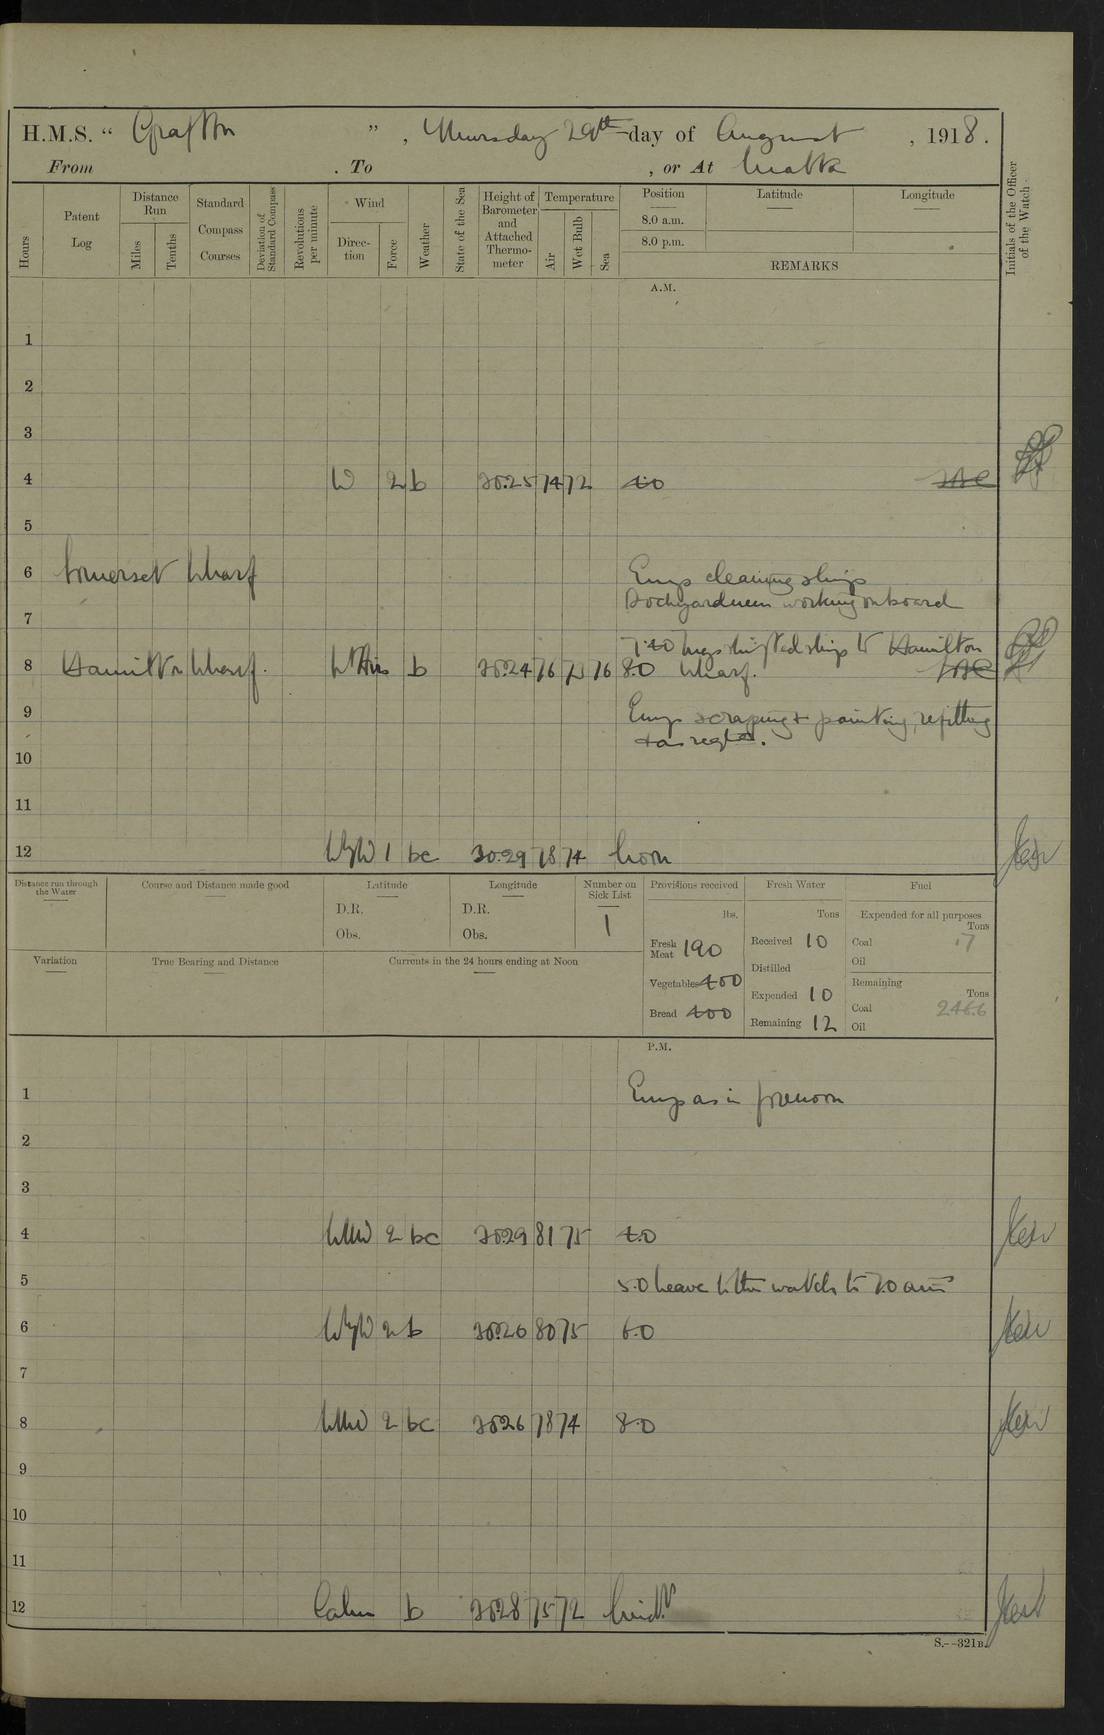 H.M.S. " Grafton " , Thursday 29th day of August , 1918.
From . To , or At Malta
Hours
Patent Log
Distance Run
Miles
Tenths
Standard Compass Courses
Deviation of Standard Compass
Revolutions per minute
Wind
Direction
Force
Weather
State of the Sea
Height of Barometer and Attached Thermometer
Temperature
Air
Wet Bulb
Sea
Position
Latitude
Longitude
8.0 a.m.
8.0 p.m.
REMARKS
Initials of the Officer of the Watch
A.M.
1
2
3
4 W 2 b 30.25 74 72 4.0
5
6 Somerset Wharf Emp cleaning ship
Dockyardmen working onboard
7
7.40 shifted ship to Hamilton
8 Hamilton Wharf. b 30.24 76 73 76 8.0 Wharf.
9 Emp scraping & painting, refitting
& as reqd.
10
11
12 WyW 1 bc 30.29 78 74 Noon
Distance run through the Water
Course and Distance made good
Latitude
D.R.
Obs.
Longitude
D.R.
Obs.
Number on Sick List
1
Provisions received
lbs.
Fresh Meat 190
Vegetables 400
Bread 400
Fresh Water
Tons
Received 10
Distilled
Expended 10
Remaining 12
Fuel
Expended for all purposes
Tons
Coal .7
Oil
Remaining
Tons
Coal 246.6
Oil
Variation
True Bearing and Distance
Currents in the 24 hours ending at Noon
P.M.
1 Emp as in forenoon
2
3
4 WNW 2 bc 30.29 81 75 4.0
5 5.0 Leave to the watch to 7.0 am
6 WyW 2 b 30.26 80 75 6.0
7
8 WNW 2 bc 30.26 78 74 8.0
9
10
11
12 Calm b 30.28 75 72 Midt.
S.--321B.